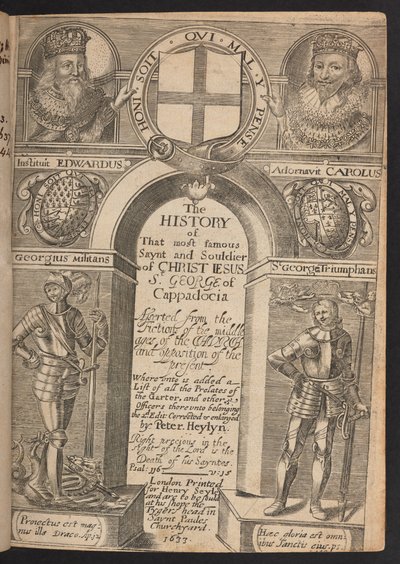 HONI · SOIT · QVI · MAL · Y · PENSE
Instituit EDWARDUS
Adornavit CAROLUS
HONI SOIT QVI MAL Y PENSE
HONI SOIT QVI MAL Y PENSE
Georgius Militans
St George Triumphans
The
HISTORY
of
That most famous
Saynt and Souldier
of CHRIST IESUS
St. GEORGE of
Cappadocia
Asserted from the
Fictions of the middle
ages of the CHURCH
and opposition of the
present
Where unto is added a
List of all the Prelates of
the Garter, and other ye
Officers there unto belonging
the 2d Edit Corrected & enlarged
by Peter. Heylyn.
Right precious in the
sight of the Lord is the
Death of his Sayntes.
Psal: 116 v: 15
London Printed
for Henry Seyle
and are to be sould
at his shop the
Tygers head in
Saynt Paules
Churchyard.
1633
Proiectus est mag-
nus ille Draco. Ap: 12
Hæc gloria est omn-
ibus Sanctis eius. ps: